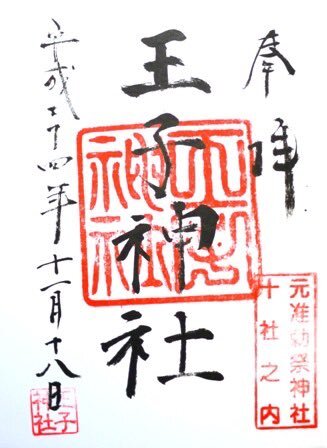 奉拝
元准勅祭神社
十社之内
王子神社
平成二十四年十一月十八日
王子
神社